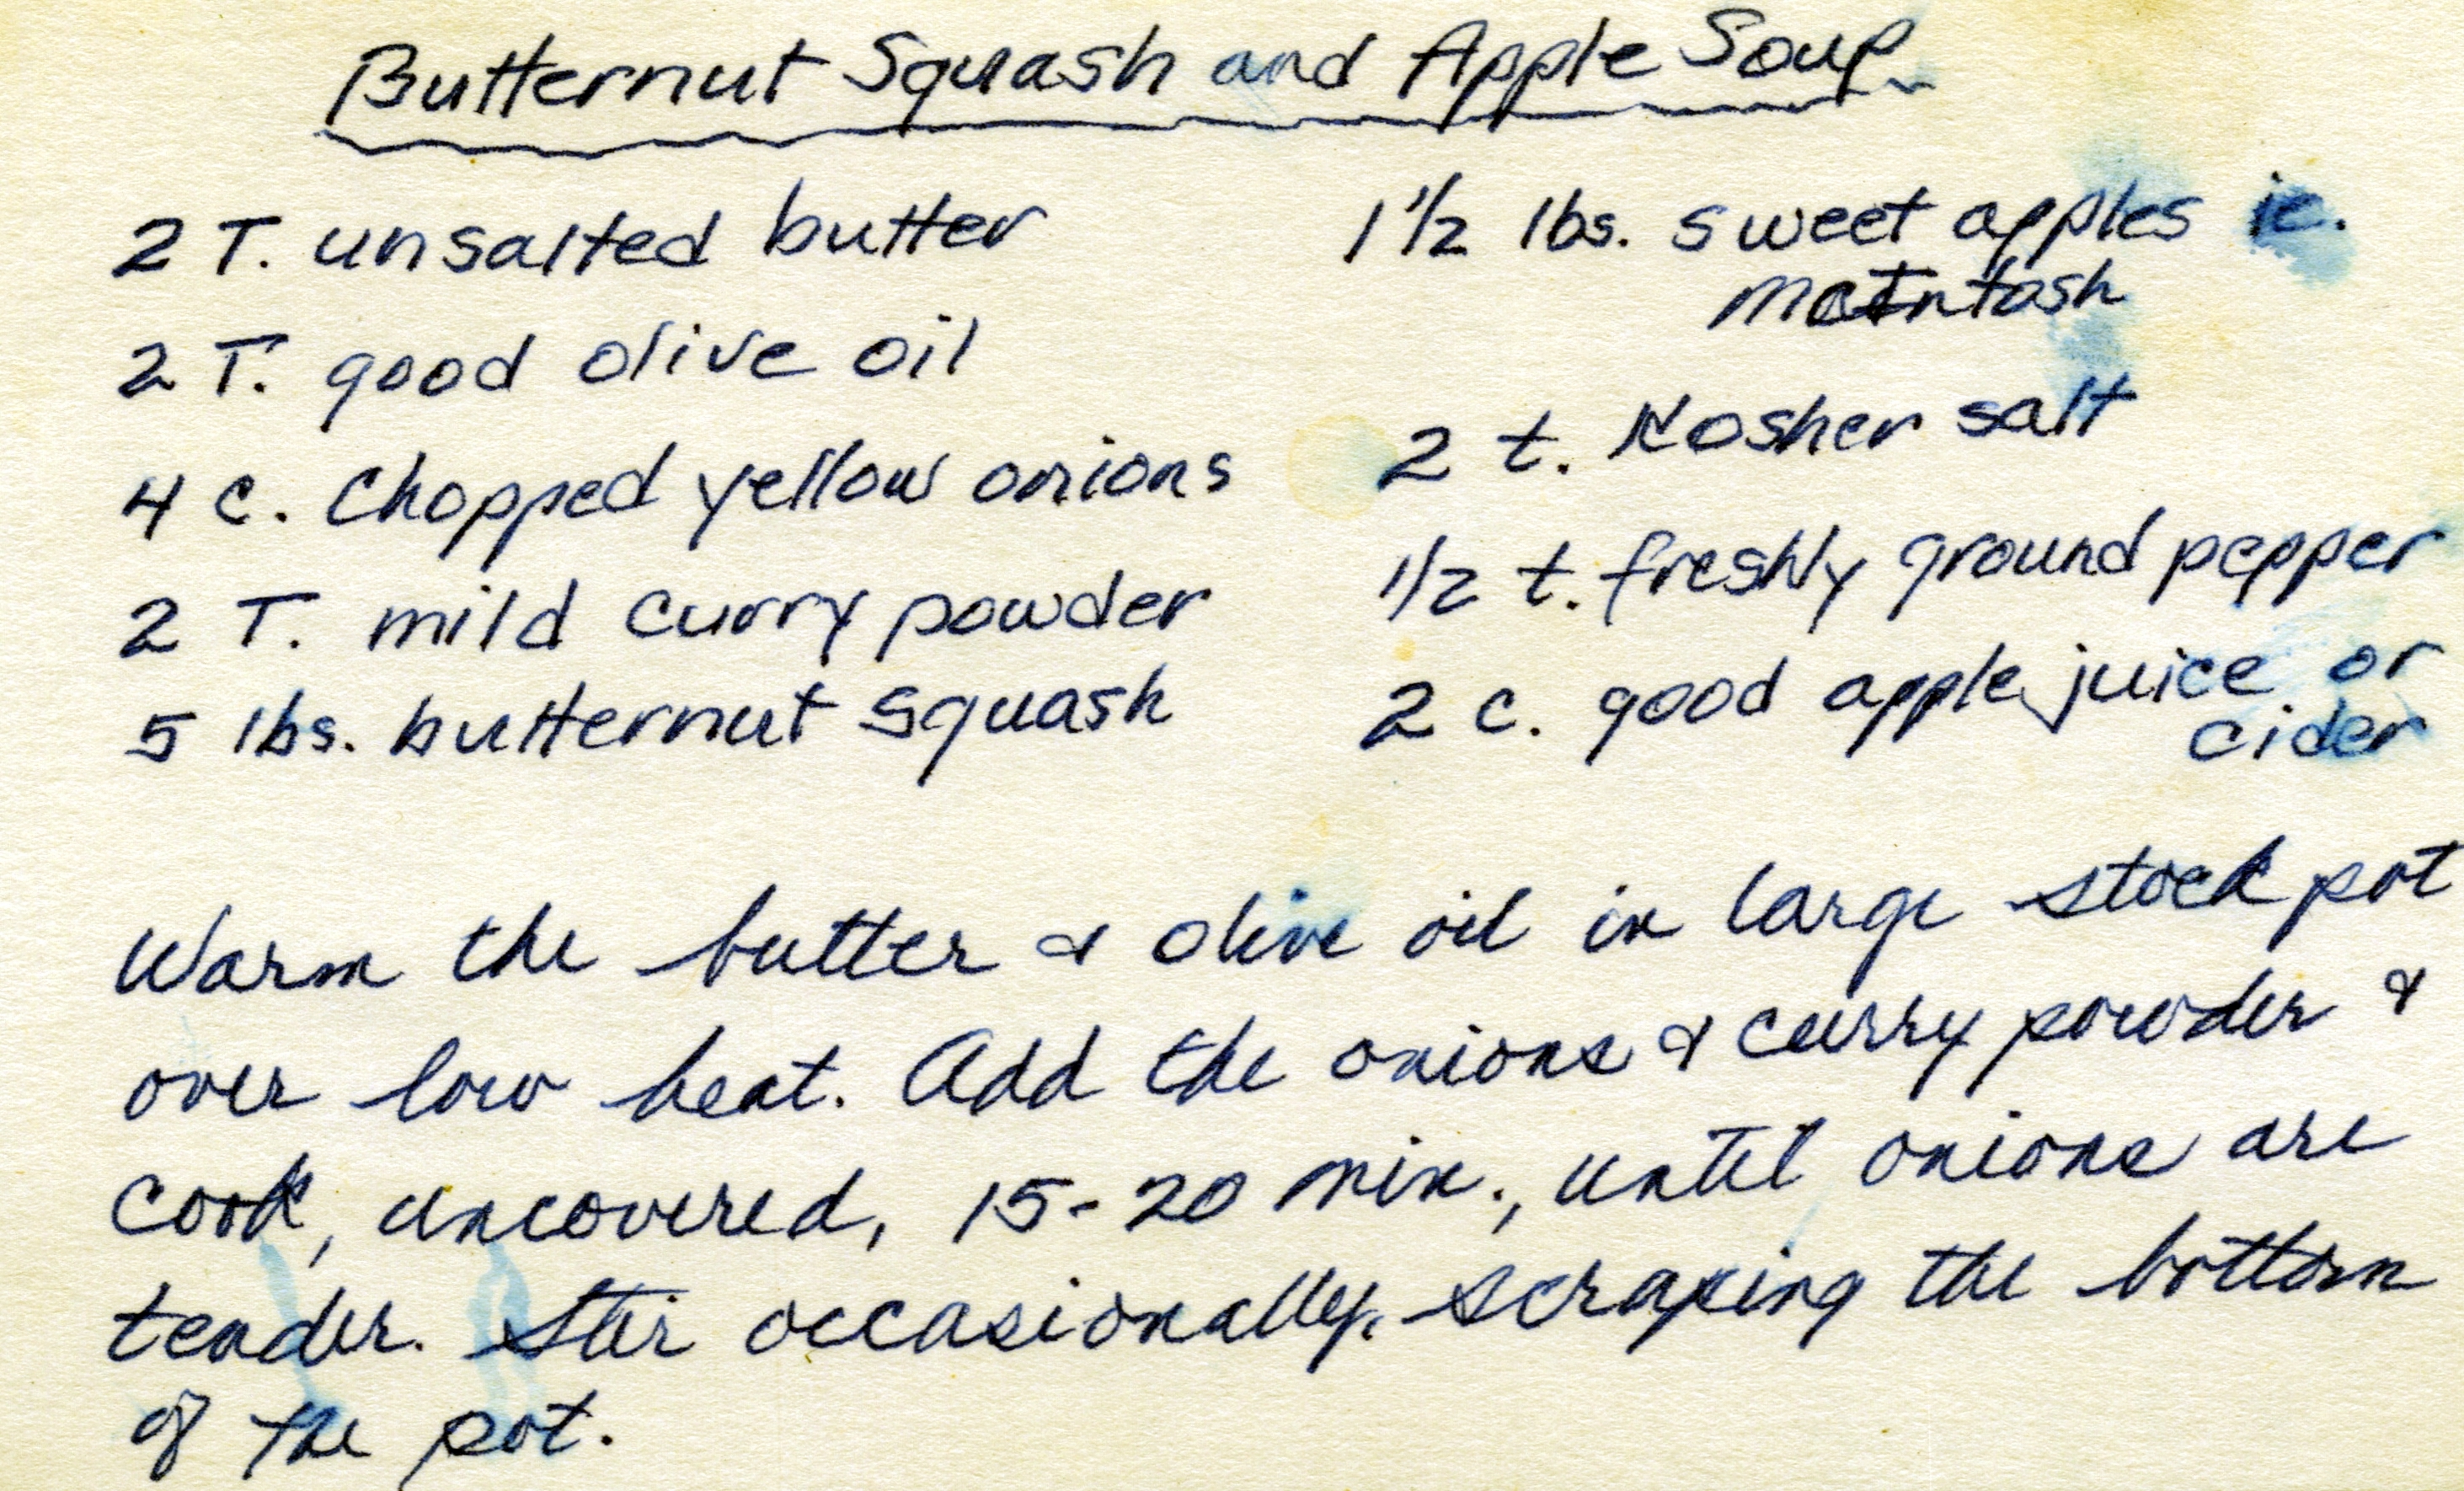 Butternut Squash and Apple Soup
2 T. unsalted butter
2 T. good olive oil
4 c. chopped yellow onions
2 T. mild curry powder
5 lbs. butternut squash
1 1/2 lbs. sweet apples ie.
McIntosh
2 t. Kosher salt
1/2 t. freshly ground pepper
2 c. good apple juice or
cider
Warm the butter & olive oil in large stock pot
over low heat. Add the onions & curry powder &
cook, uncovered, 15-20 min., until onions are
tender. Stir occasionally, scraping the bottom
of the pot.